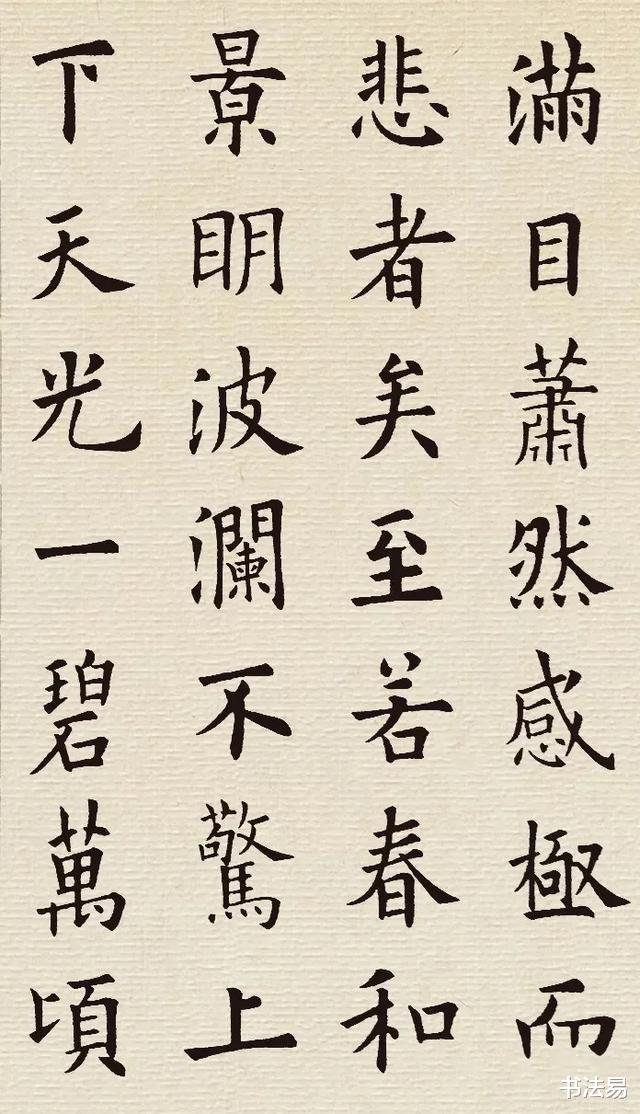 滿目蕭然感極而
悲者矣至若春和
景明波瀾不驚上
下天光一碧萬頃
书法易